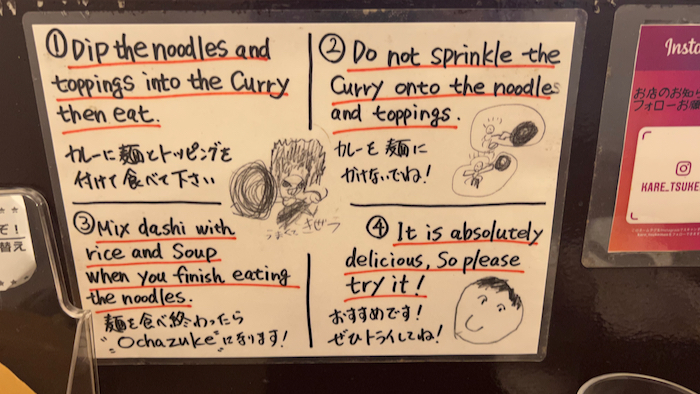 ① Dip the noodles and
toppings into the Curry
then eat.
カレーに麺とトッピングを
付けて食べて下さい
② Do not sprinkle the
Curry onto the noodles
and toppings.
カレーを麺に
かけないでね!
③ Mix dashi with
rice and Soup
when you finish eating
the noodles.
麺を食べ終わったら
"Ochazuke"になります!
④ It is absolutely
delicious, So please
try it!
おすすめです!
ぜひトライしてね!
Insta
お店のお知ら
フォローお願
KARE_TSUKE
ぞ!
替え